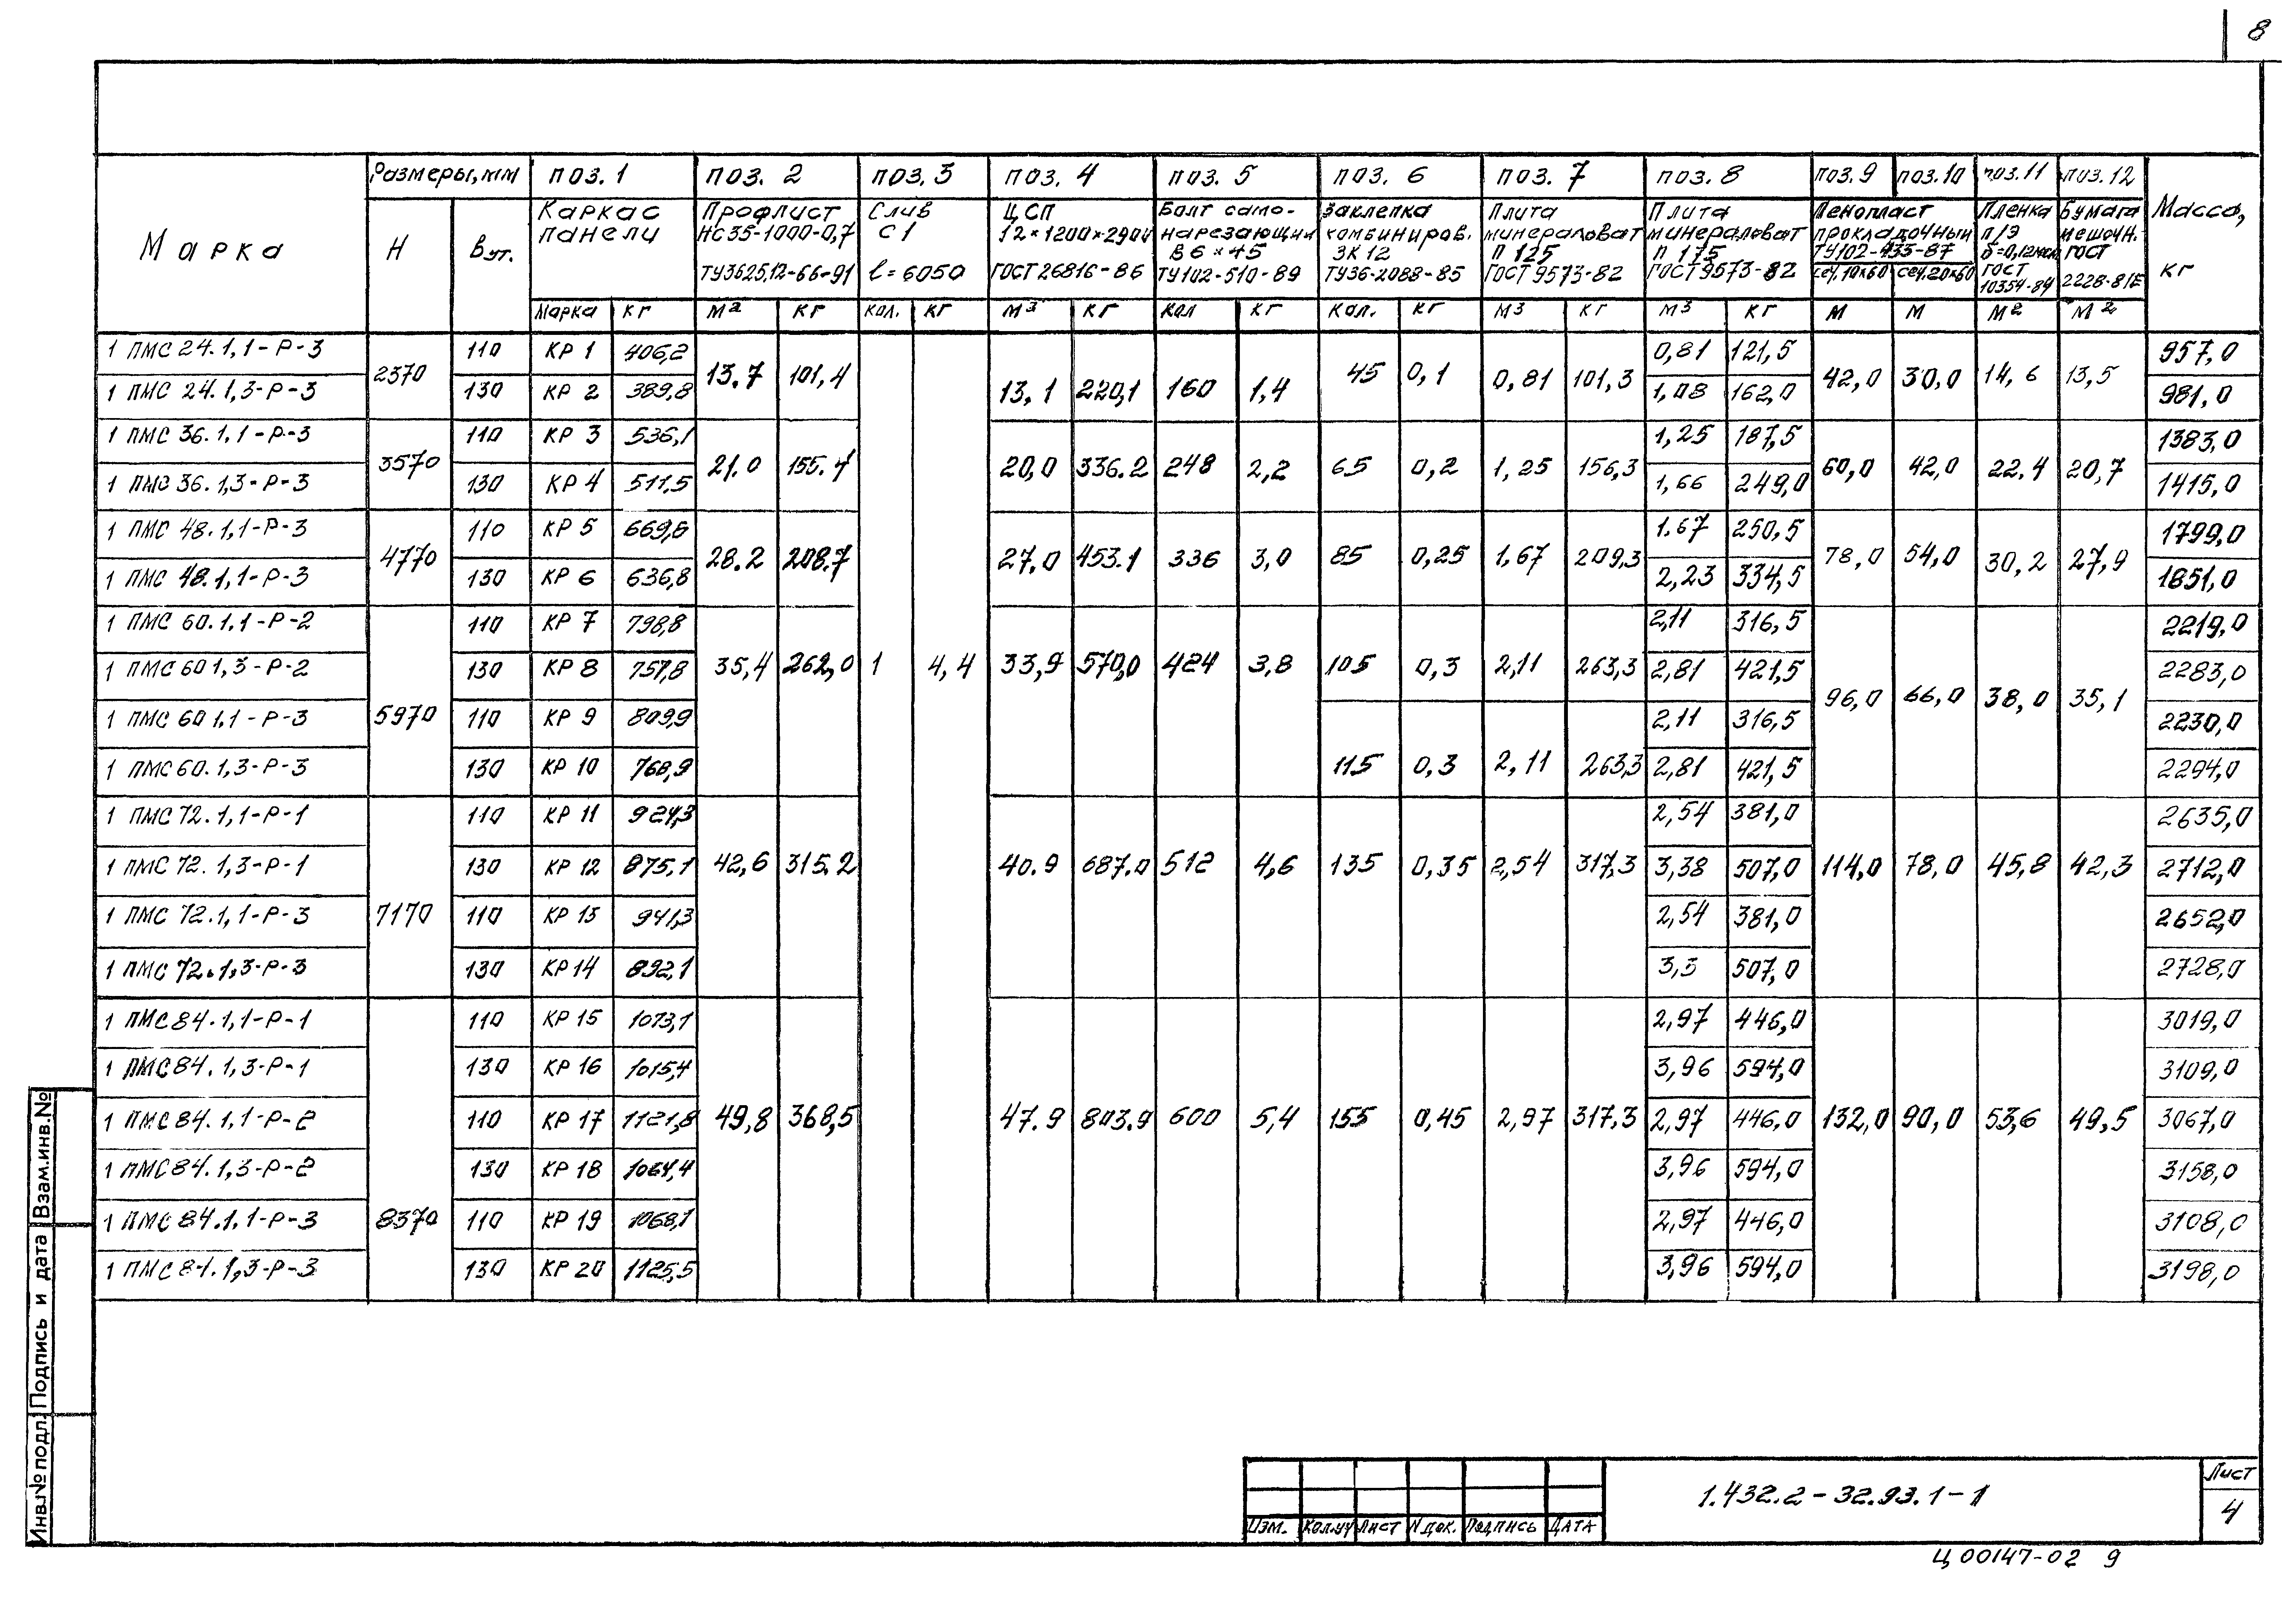 8
Марка | Размеры, мм | поз. 1 | поз. 2 | поз. 3 | поз. 4 | поз. 5 | поз. 6 | поз. 7 | поз. 8 | поз. 9 | поз. 10 | поз. 11 | поз. 12 | Масса, кг
Н | Вут. | Каркас панели | Профлист НС35-1000-0,7 ТУ3625,12-66-91 | Слив С1 ℓ=6050 | ЦСП 12×1200×2900 ГОСТ 26816-86 | Болт самонарезающий В6×45 ТУ102-510-89 | Заклепка комбиниров. ЗК12 ТУ36-2088-85 | Плита минераловат П 125 ГОСТ 9573-82 | Плита минераловат П 175 ГОСТ 9573-82 | Пенопласт прокладочный ТУ102-433-87 сеч.10×60 | сеч.20×60 | Пленка п/э δ=0,12мм ГОСТ 10354-84 | Бумага мешочн. ГОСТ 2228-81Е
Марка | кг | м2 | кг | кол. | кг | м3 | кг | кол | кг | кол. | кг | м3 | кг | м3 | кг | м | м | м2 | м2
1 ПМС 24.1,1-Р-3 | 2370 | 110 | КР 1 | 406,2 | 13.7 | 101,4 | 13,1 | 220,1 | 160 | 1,4 | 45 | 0,1 | 0,81 | 101,3 | 0,81 | 121,5 | 42,0 | 30,0 | 14,6 | 13,5 | 957,0
1 ПМС 24.1,3-Р-3 | 130 | КР 2 | 389,8 | 1,08 | 162,0 | 981,0
1 ПМС 36.1,1-Р-3 | 3570 | 110 | КР 3 | 536,1 | 21.0 | 155.4 | 20,0 | 336.2 | 248 | 2,2 | 65 | 0,2 | 1,25 | 156,3 | 1,25 | 187,5 | 60,0 | 42,0 | 22.4 | 20,7 | 1383,0
1 ПМС 36.1,3-Р-3 | 130 | КР 4 | 511,5 | 1,66 | 249,0 | 1415,0
1 ПМС 48.1,1-Р-3 | 4770 | 110 | КР 5 | 669,6 | 28.2 | 208.7 | 27,0 | 453.1 | 336 | 3,0 | 85 | 0,25 | 1,67 | 209,3 | 1.67 | 250,5 | 78,0 | 54,0 | 30,2 | 27,9 | 1799,0
1 ПМС 48.1,1-Р-3 | 130 | КР 6 | 636,8 | 2,23 | 334,5 | 1851,0
1 ПМС 60.1.1-Р-2 | 5970 | 110 | КР 7 | 798,8 | 35,4 | 262,0 | 1 | 4,4 | 33,9 | 570,0 | 424 | 3,8 | 105 | 0,3 | 2,11 | 263,3 | 2,11 | 316,5 | 96,0 | 66,0 | 38,0 | 35,1 | 2219,0
1 ПМС 60 1,3-Р-2 | 130 | КР 8 | 757,8 | 2,81 | 421,5 | 2283,0
1 ПМС 60 1,1-Р-3 | 110 | КР 9 | 809,9 | 115 | 0,3 | 2,11 | 263,3 | 2,11 | 316,5 | 2230,0
1 ПМС 60.1,3-Р-3 | 130 | КР 10 | 768,9 | 2,81 | 421,5 | 2294,0
1 ПМС 72.1,1-Р-1 | 7170 | 110 | КР 11 | 924,3 | 42,6 | 315.2 | 40.9 | 687.0 | 512 | 4,6 | 135 | 0,35 | 2,54 | 317,3 | 2,54 | 381,0 | 114,0 | 78,0 | 45,8 | 42,3 | 2635,0
1 ПМС 72.1,3-Р-1 | 130 | КР 12 | 875,1 | 3,38 | 507,0 | 2712,0
1 ПМС 72.1,1-Р-3 | 110 | КР 13 | 941,3 | 2,54 | 381,0 | 2652,0
1 ПМС 72.1,3-Р-3 | 130 | КР 14 | 892,1 | 3,3 | 507,0 | 2728,0
1 ПМС 84.1,1-Р-1 | 8370 | 110 | КР 15 | 1073,1 | 49,8 | 368,5 | 47.9 | 803.9 | 600 | 5,4 | 155 | 0,45 | 2,97 | 317,3 | 2,97 | 446,0 | 132,0 | 90,0 | 53,6 | 49,5 | 3019,0
1 ПМС 84.1,3-Р-1 | 130 | КР 16 | 1015,4 | 3,96 | 594,0 | 3109,0
1 ПМС 84.1,1-Р-2 | 110 | КР 17 | 1121,8 | 2,97 | 446,0 | 3067,0
1 ПМС 84.1,3-Р-2 | 130 | КР 18 | 1064,4 | 3,96 | 594,0 | 3158,0
1 ПМС 84.1,1-Р-3 | 110 | КР 19 | 1068,1 | 2,97 | 446,0 | 3108,0
1 ПМС 84.1,3-Р-3 | 130 | КР 20 | 1125,5 | 3,96 | 594,0 | 3198,0
Инв.№ подл. | Подпись и дата | Взам.инв.№
Изм. | Кол.уч | Лист | N док. | Подпись | Дата
1.432.2-32.93.1-1
Лист
4
Ц00147-02 9